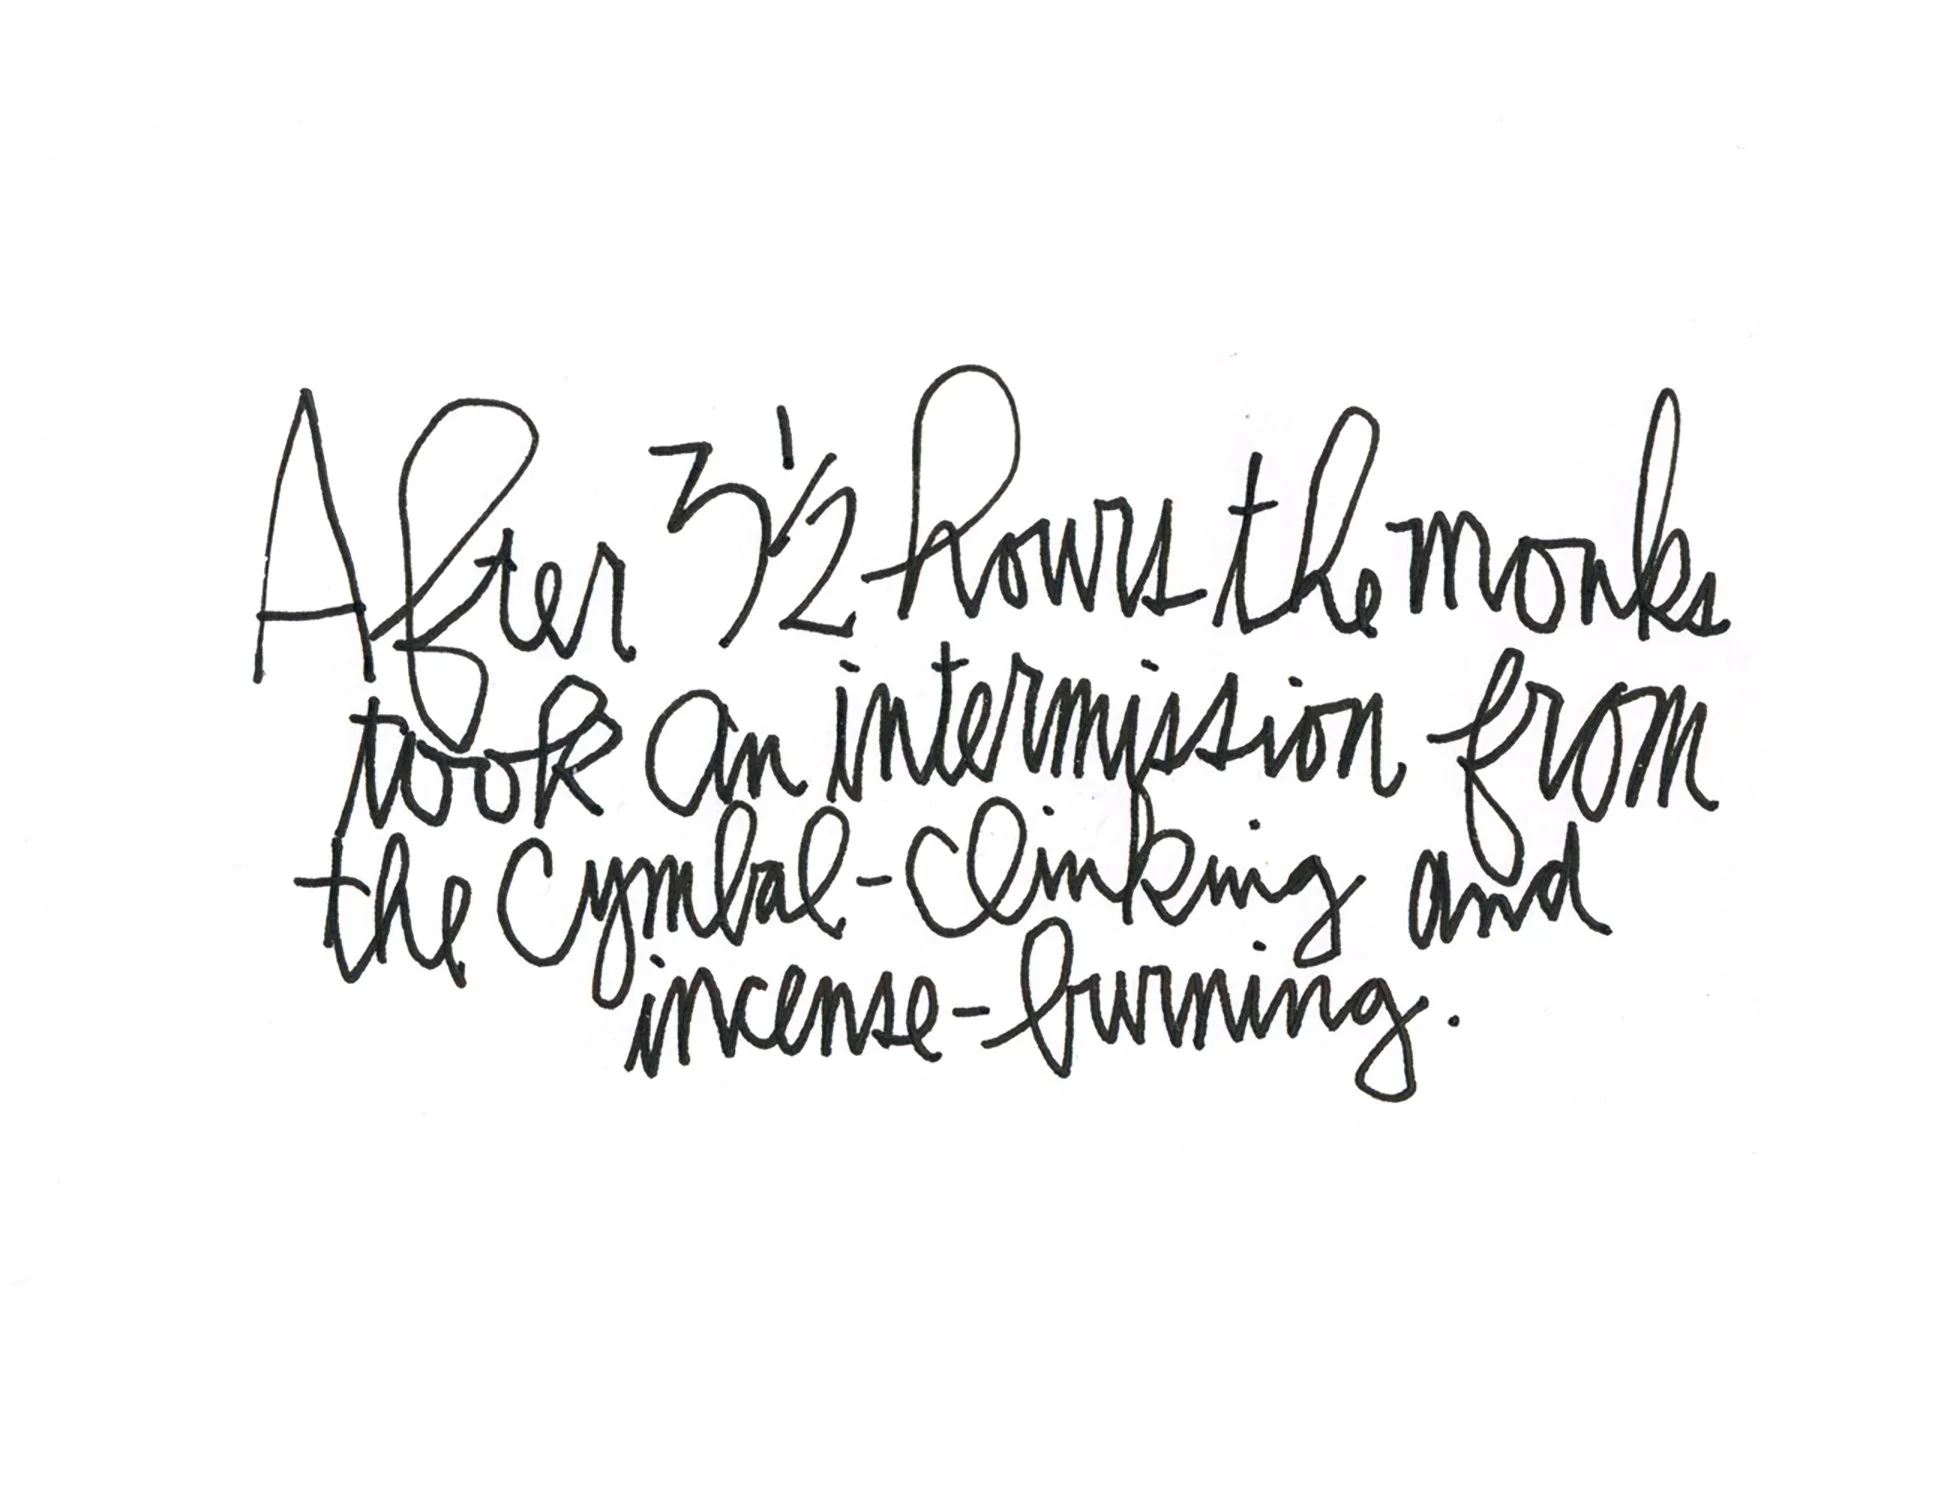 After 3½ hours the monks
took an intermission from
the cymbal-clinking and
incense-burning.